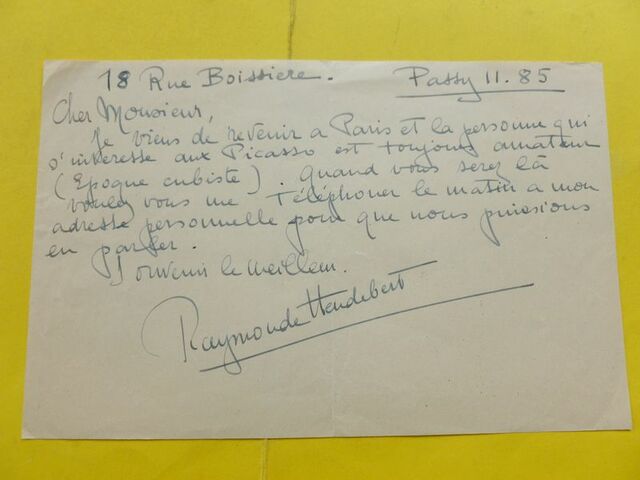 18 Rue Boissiere. Passy 11.85
Cher Monsieur,
Je viens de revenir a Paris et la personne qui
s'interesse aux Picasso est toujours amateur
(Epoque cubiste). Quand vous serez là
voulez vous me Téléphoner le matin a mon
adresse personnelle pour que nous puissions
en parler.
Souvenir le meilleur.
Raymonde Heudebert